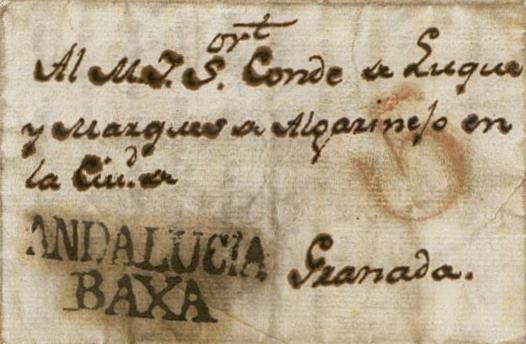 Al M. I. S.ort Conde de Luque
y Marques de Algarinejo en
la Ciud. de
5
ANDALUCIA
BAXA
Granada.